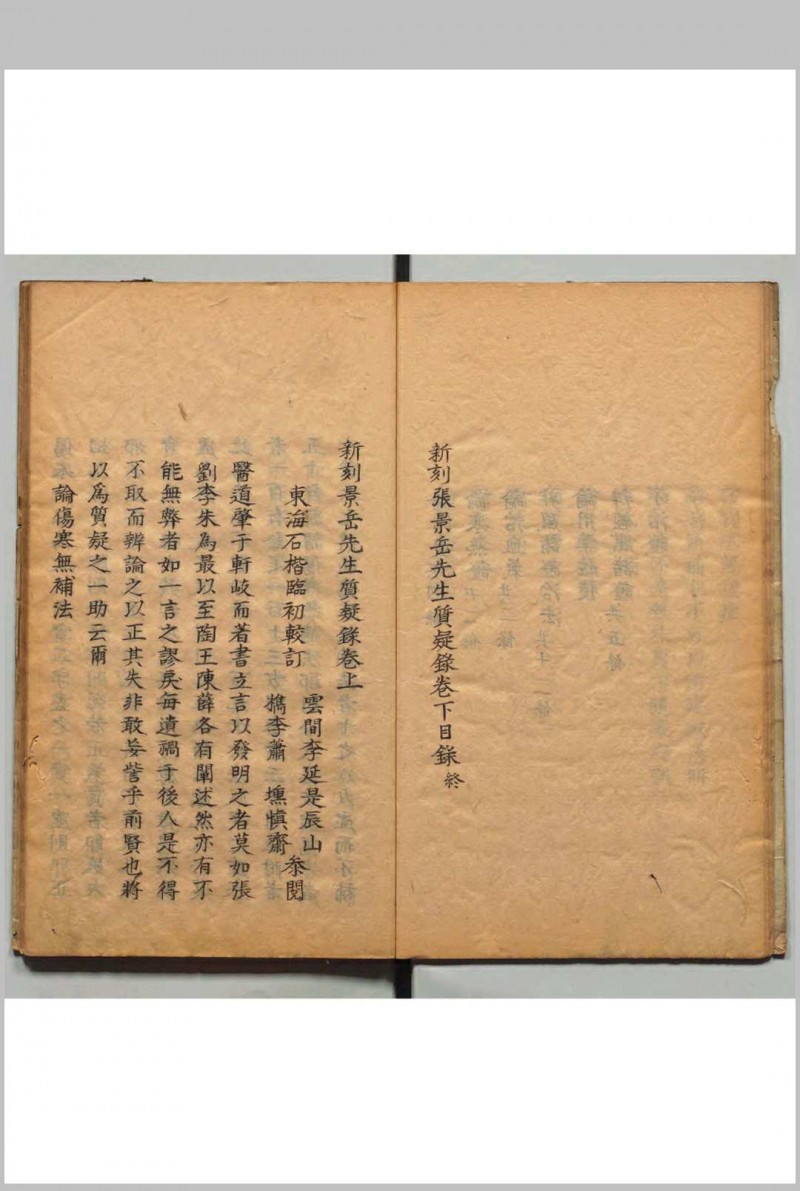 新刻張景岳先生質疑錄卷下目錄終
新刻景岳先生質疑錄卷上
雲間李延是辰山
東海石楷臨初較訂
檇李蕭壎慎齋
叅閱
醫道肇于軒岐而著書立言以發明之者莫如張
劉李朱為最以至陶王陳薛各有闡述然亦有不
能無弊者如一言之謬戾每遺禍于後人是不得
不取而辨論之以正其失非敢妄訾乎前賢也將
以為質疑之一助云爾
論傷寒無補法